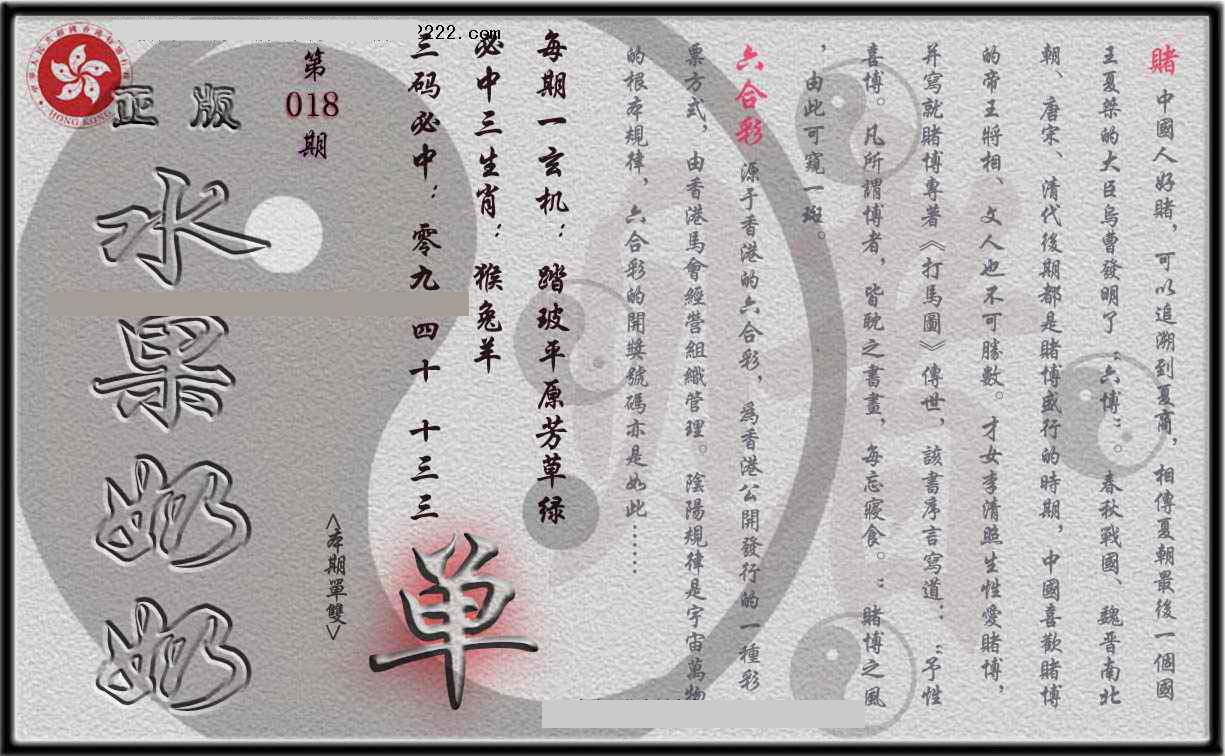 賭 中國人好賭，可以追溯到夏商，相傳夏朝最後一個國
王夏桀的大臣烏曹發明了“六博”。春秋戰國、魏晋南北
朝、唐宋、清代後期都是賭博盛行的時期，中國喜歡賭博
的帝王將相、文人也不可勝數。才女李清照生性愛賭博，
并寫就賭博專著《打馬圖》傳世，該書序言寫道：“予性
喜博。凡所謂博者，皆耽之書畫，每忘寢食。“賭博之風
，由此可窺一斑。
六合彩 源于香港的六合彩，爲香港公開發行的一種彩
票方式，由香港馬會經營組織管理。陰陽規律是宇宙萬物
的根本規律，六合彩的開獎號碼亦是如此……
每期一玄机：踏玻平原芳草绿
必中三生肖：猴兔羊
三码必中：零九 四十 十三三
单
<本期單雙>
第
018
期
正版
水果奶奶
2222.com
HONG KONG